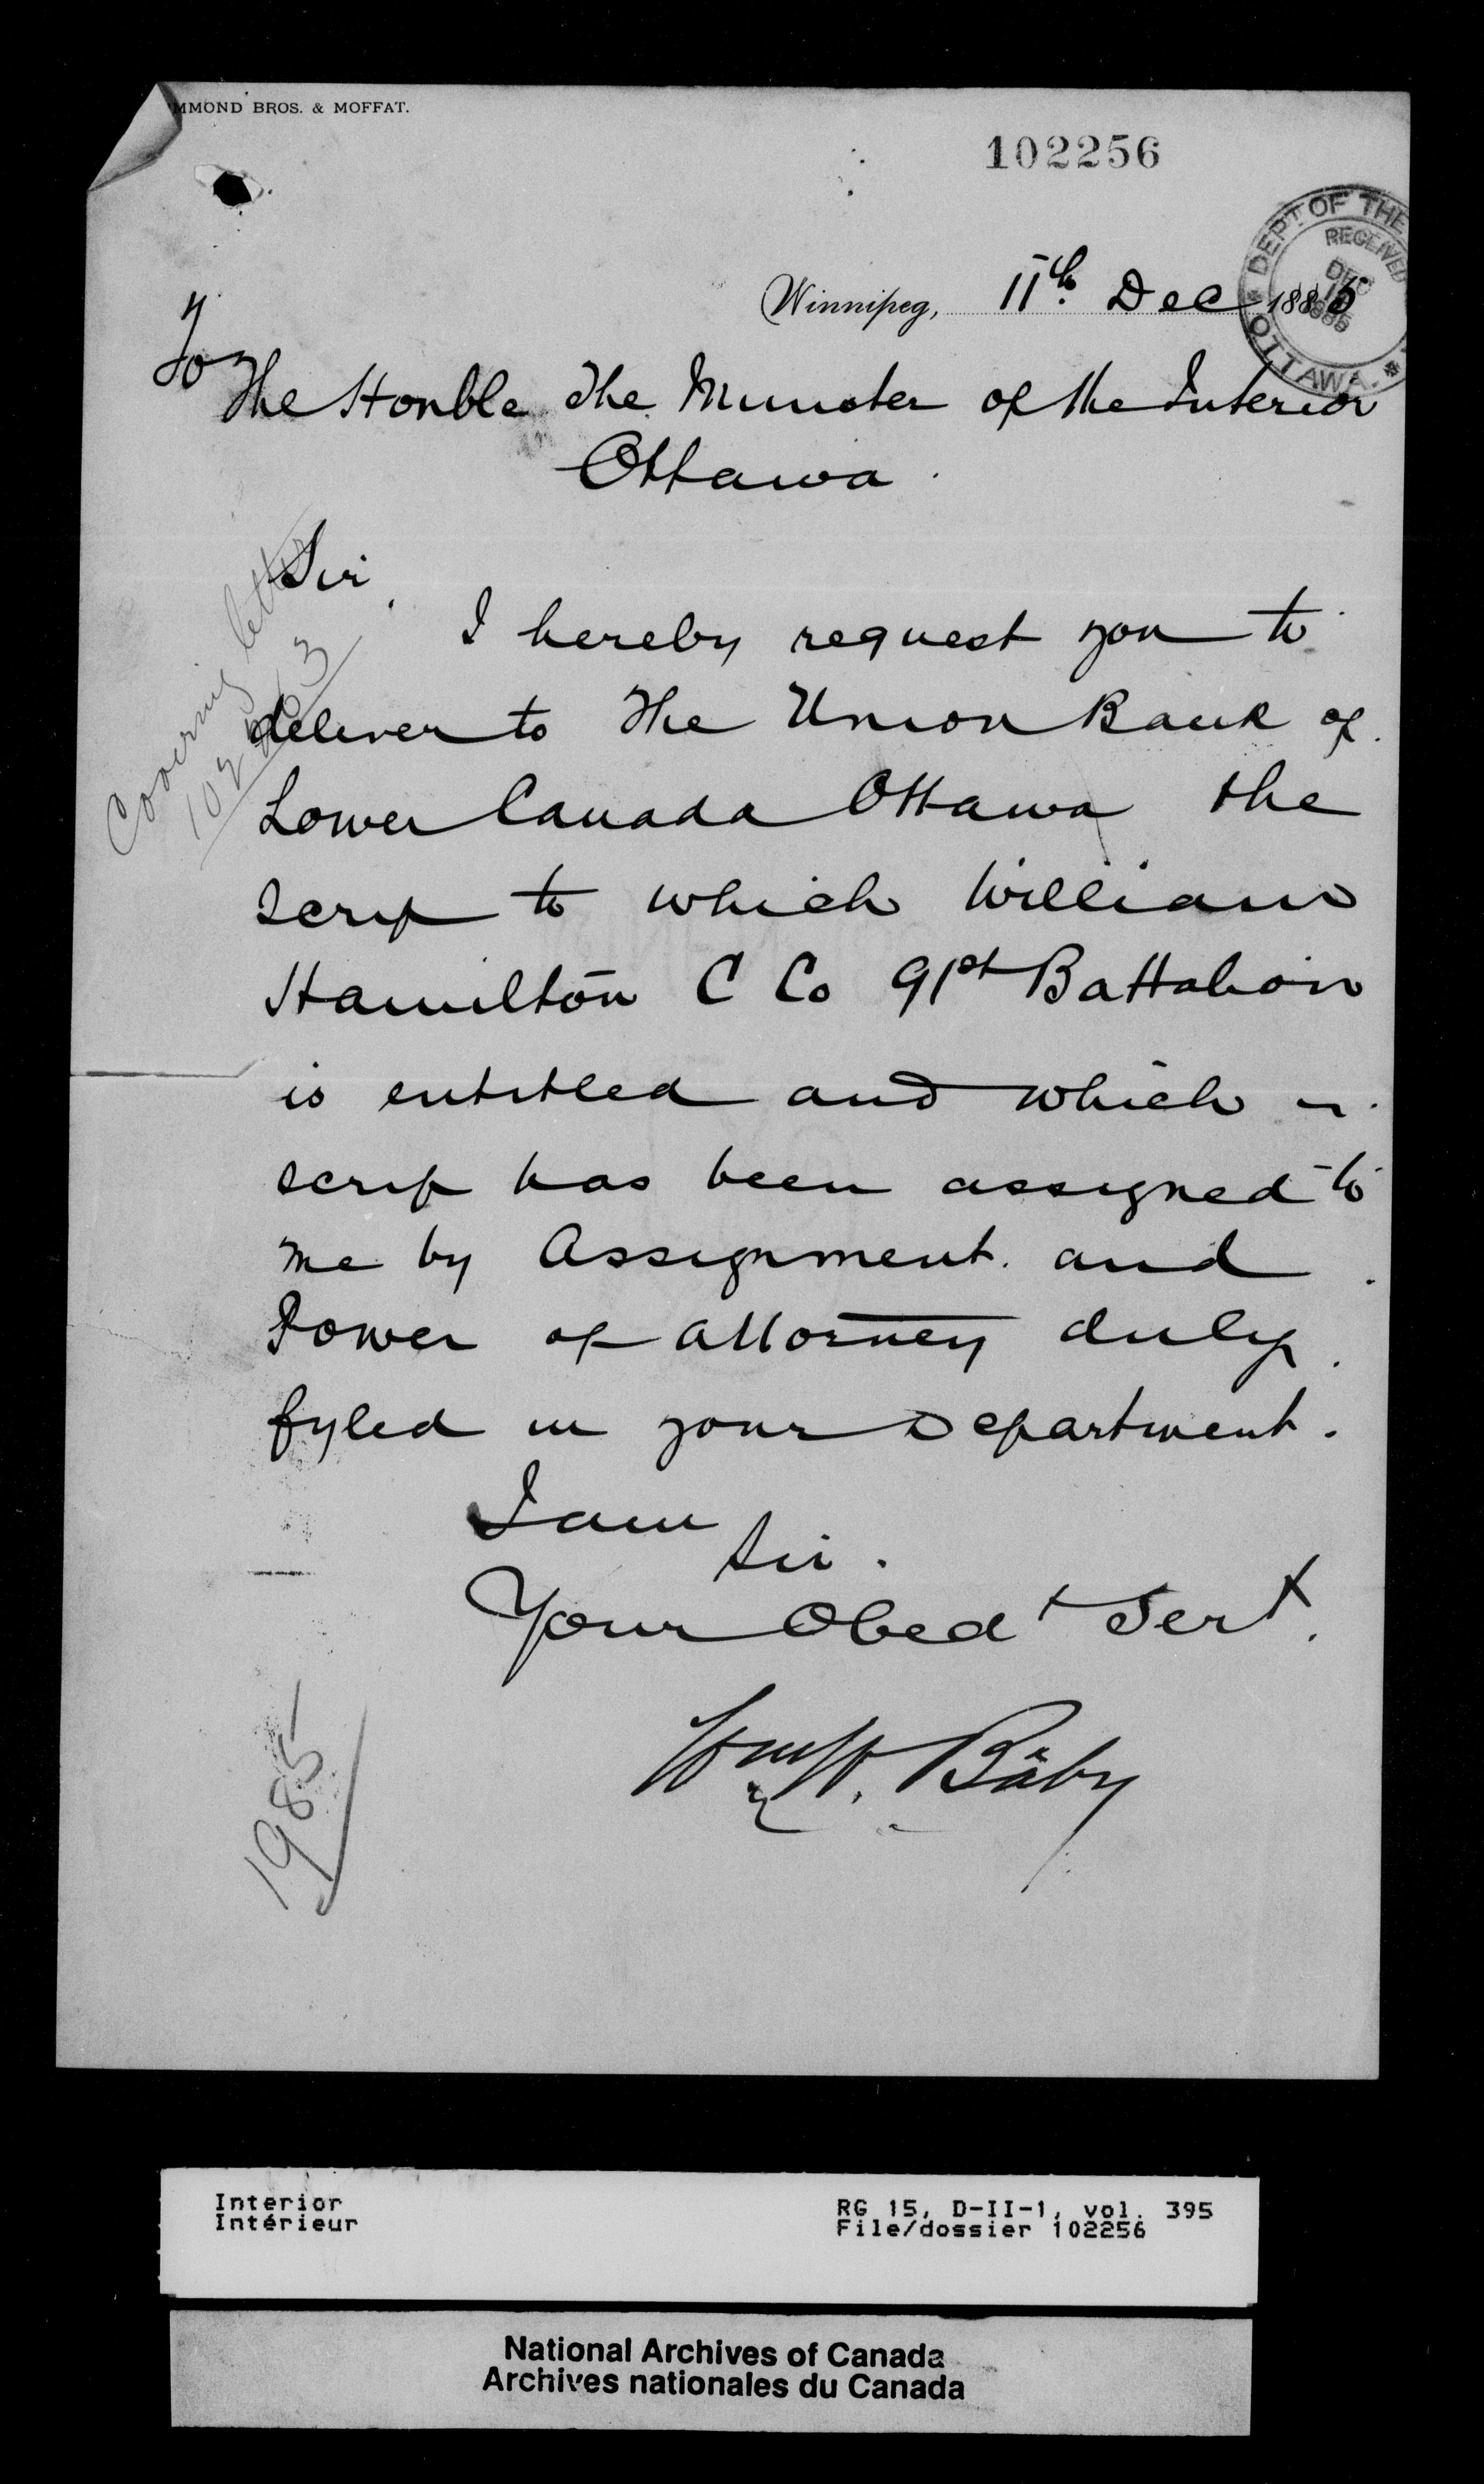 MMOND BROS. & MOFFAT.
102256
DEPT OF THE
RECEIVED
DEC
1885
OTTAWA.
Winnipeg, 11th Dec 1885
To
The Honble The Minister of the Interior
Ottawa.
Sir,
Covering letter
I hereby request you to
deliver to The Union Bank of
Lower Canada Ottawa the
scrip to which William
Hamilton C Co 91st Battalion
is entitled and which
scrip has been assigned to
me by Assignment. and
Power of Attorney duly
fyled in your Department.
I am
Sir.
Your Obedt Servt.
Wm W. Baby
1985
Interior
Intérieur
RG 15, D-II-1, vol. 395
File/dossier 102256
National Archives of Canada
Archives nationales du Canada